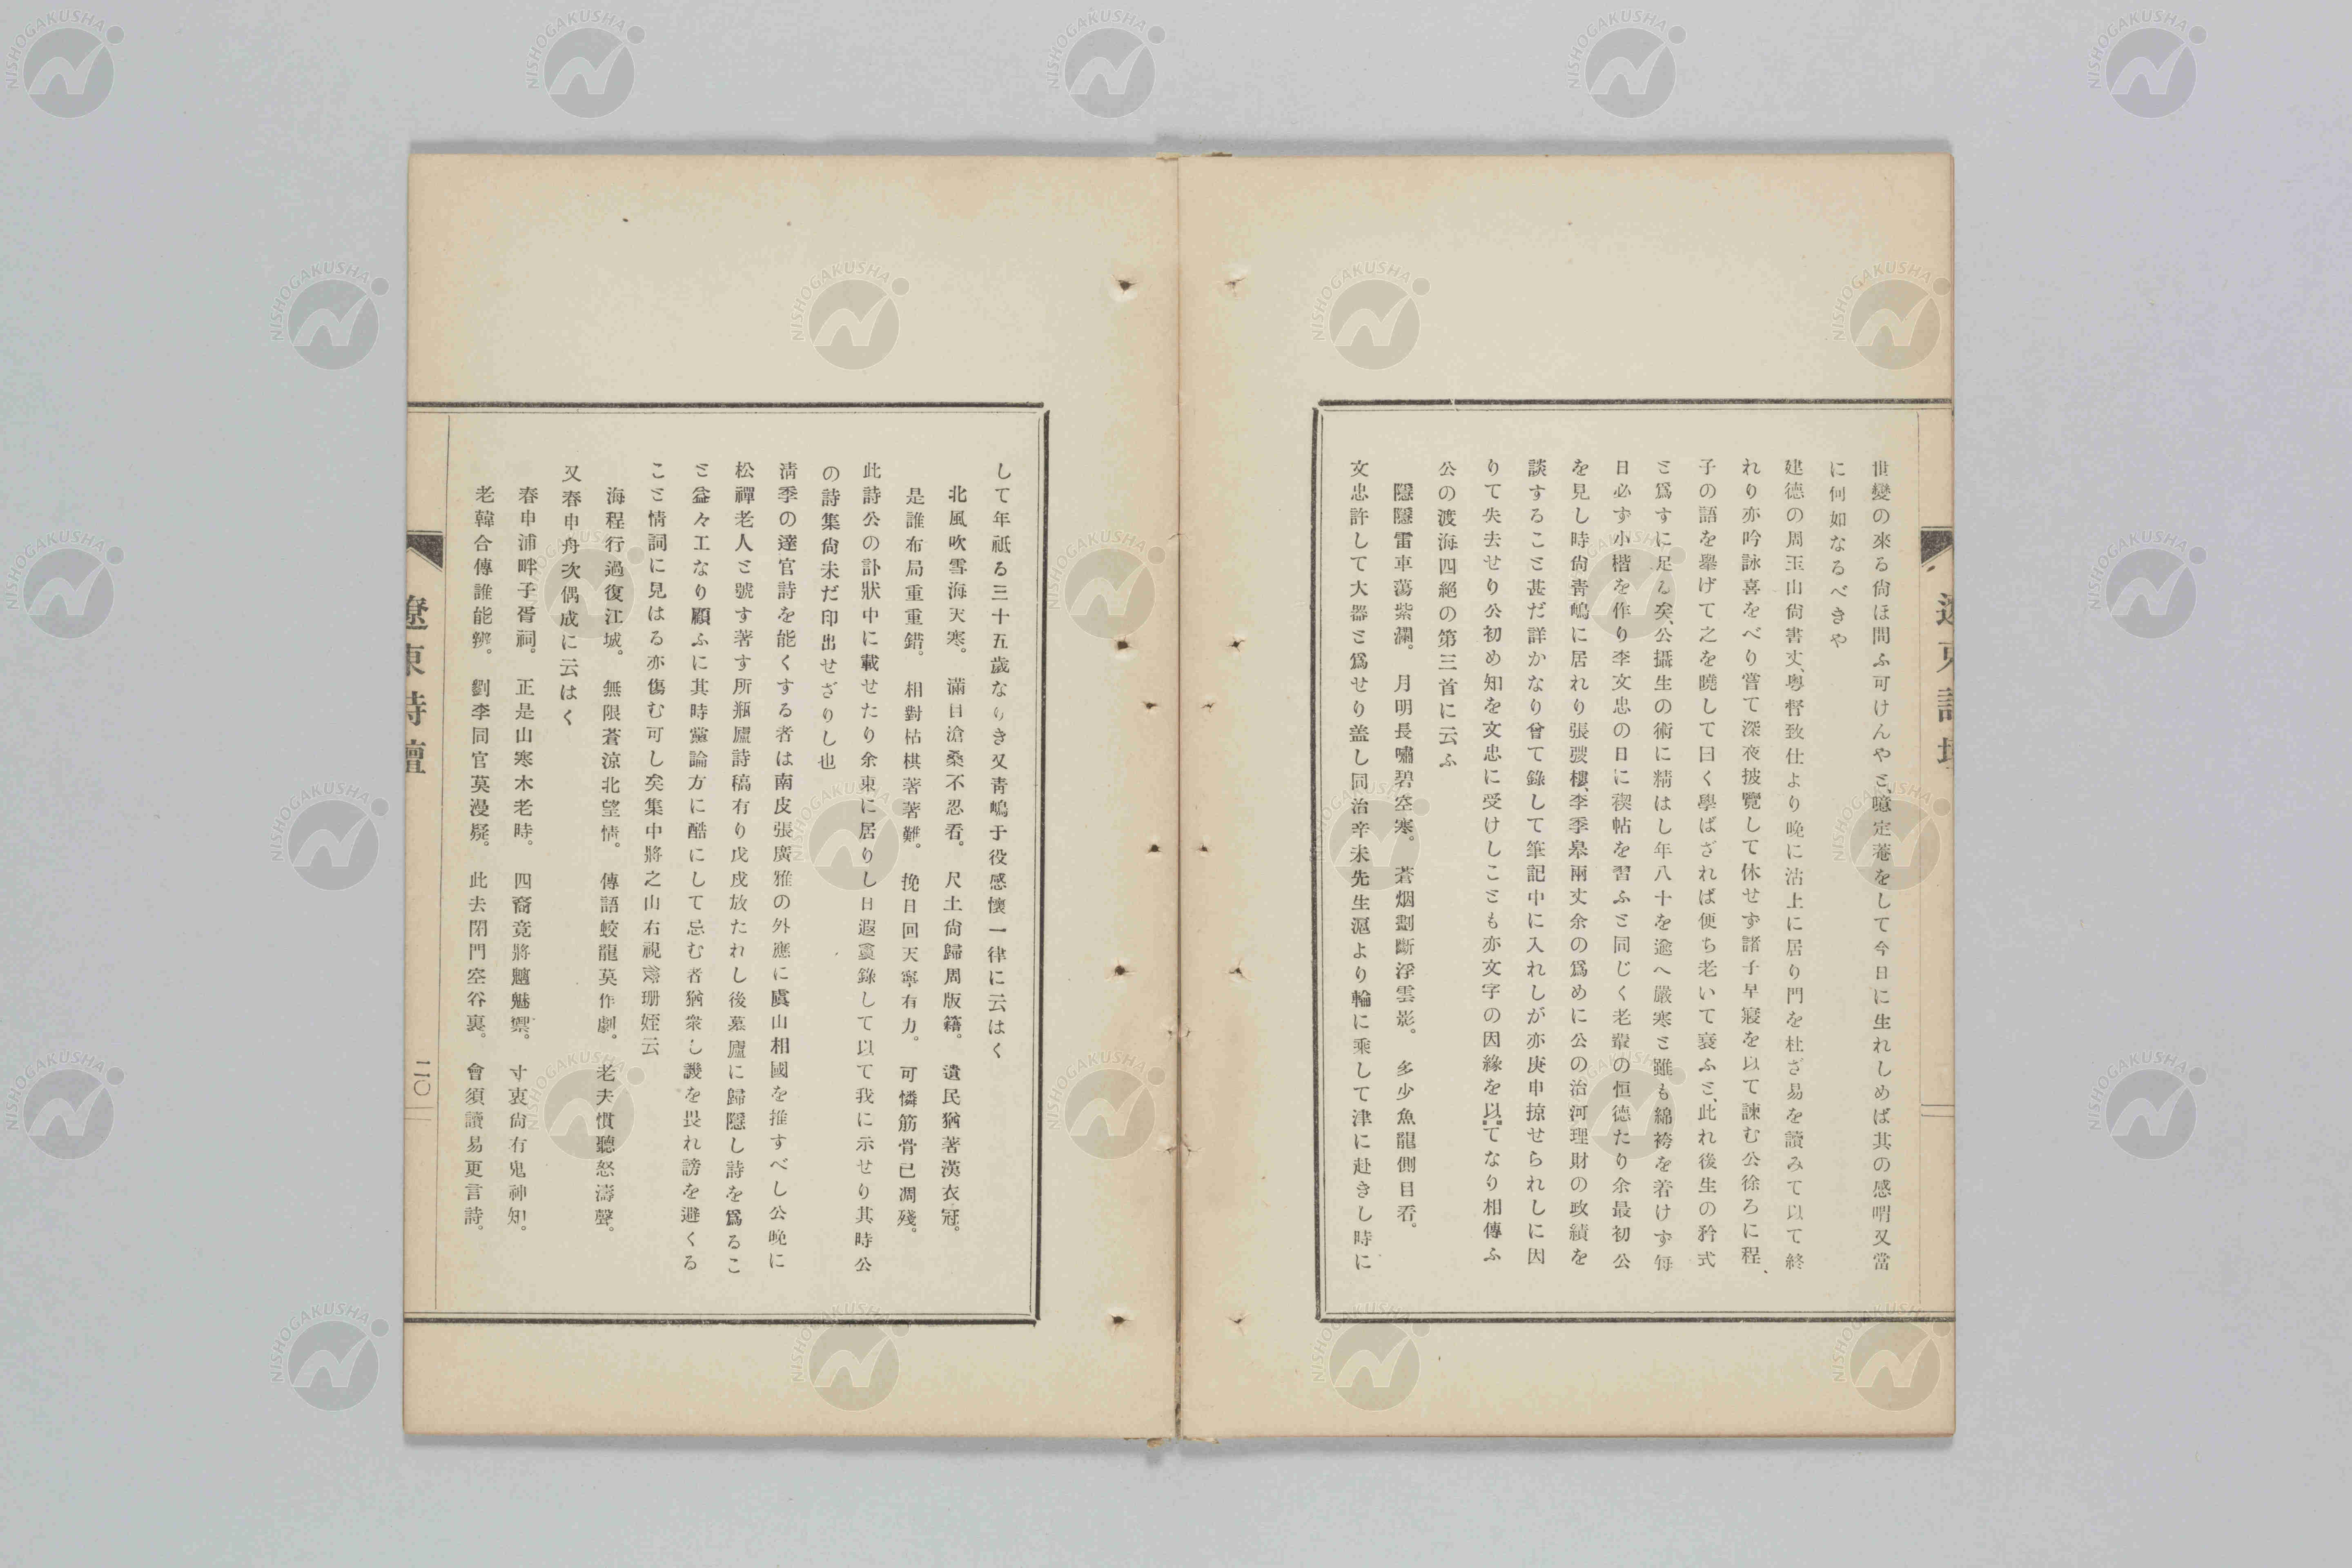 世變の來る尙ほ問ふ可けんやと、噫定菴をして今日に生れしめば其の感喟又當
に何如なるべきや
建德の周玉山尙書丈、粵督致仕より晩に沽上に居り門を杜ざ易を讀みて以て終
れり亦吟詠喜をべり嘗て深夜披覽して休せず諸子早寢を以て諫む公徐ろに程、
子の語を擧げて之を曉して曰く學ばざれば便ち老いて衰ふと、此れ後生の矜式
と爲すに足る矣、公攝生の術に精はし年八十を逾へ嚴寒と雖も綿袴を着けず每
日必ず小楷を作り李文忠の日に禊帖を習ふと同じく老輩の恒德たり余最初公
を見し時尙靑嶋に居れり張弢樓、李季皋兩丈余の爲めに公の治河理財の政績を
談すること甚だ詳かなり曾て錄して筆記中に入れしが亦庚申掠せられしに因
りて失去せり公初め知を文忠に受けしことも亦文字の因緣を以てなり相傳ふ
公の渡海四絕の第三首に云ふ
隱隱雷車蕩紫瀾。 月明長嘯碧空寒。 蒼烟劃斷浮雲影。 多少魚龍側目看。
文忠許して大器と爲せり盖し同治辛未先生滬より輪に乘して津に赴きし時に
して年祗る三十五歲なりき又靑嶋于役感懷一律に云はく
北風吹雪海天寒。 滿目滄桑不忍看。 尺土尙歸周版籍。 遺民猶著漢衣冠。
是誰布局重重錯。 相對枯棋著著難。 挽日回天寧有力。 可憐筋骨已凋殘。
此詩公の訃狀中に載せたり余東に居りし日遐袞錄して以て我に示せり其時公
の詩集尙未だ印出せざりし也
淸季の達官詩を能くする者は南皮張廣雅の外應に虞山相國を推すべし公晚に
松禪老人と號す著す所瓶廬詩稿有り戊戌放たれし後墓廬に歸隱し詩を爲るこ
と益々工なり顧ふに其時黨論方に酷にして忌む者猶衆し譏を畏れ謗を避くる
こと情詞に見はる亦傷む可し矣集中將之山右視筱珊姪云
海程行過復江城。 無限蒼涼北望情。 傳語蛟龍莫作劇。 老夫慣聽怒濤聲。
又春申舟次偶成に云はく
春申浦畔子胥祠。 正是山寒木老時。 四裔竟將魑魅禦。 寸衷尙有鬼神知。
老韓合傳誰能辨。 劉李同官莫漫疑。 此去閉門空谷裏。 會須讀易更言詩。
遼東詩壇
二〇